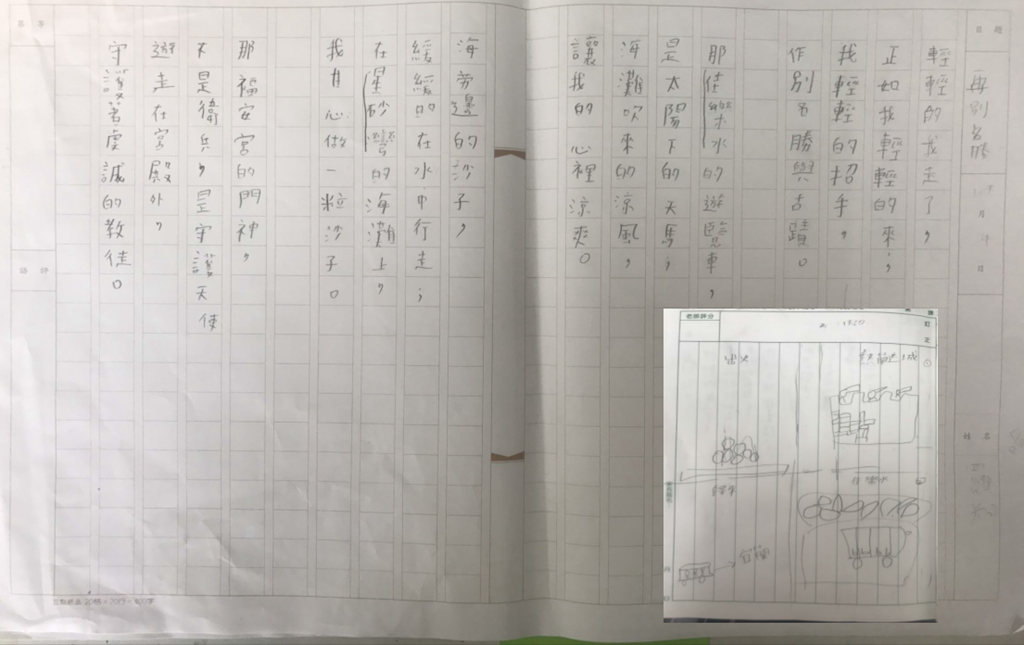 再別名勝
輕輕的我走了，
正如我輕輕的來；
我輕輕的招手，
作別名勝與古蹟。
那佳樂水的遊覽車，
是太陽下的天馬；
海灘吹來的涼風，
讓我的心裡涼爽。
海旁邊的沙子，
緩緩的在水中行走；
在星砂灣的海灘上，
我甘心做一粒沙子。
那福安宮的門神，
不是衛兵，是守護天使
遊走在宮殿外，
守護著虔誠的教徒。
姓名
評語
老師評分
訂正
出火